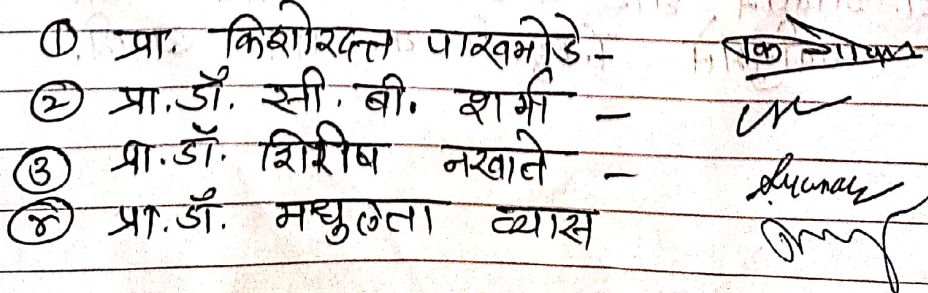 ① प्रा. किशोरदत्त पाखमोडे -
② प्रा.डॉ. सी. बी. शर्मा -
③ प्रा.डॉ. शिरीष नखाते -
④ प्रा.डॉ. मधुलता व्यास